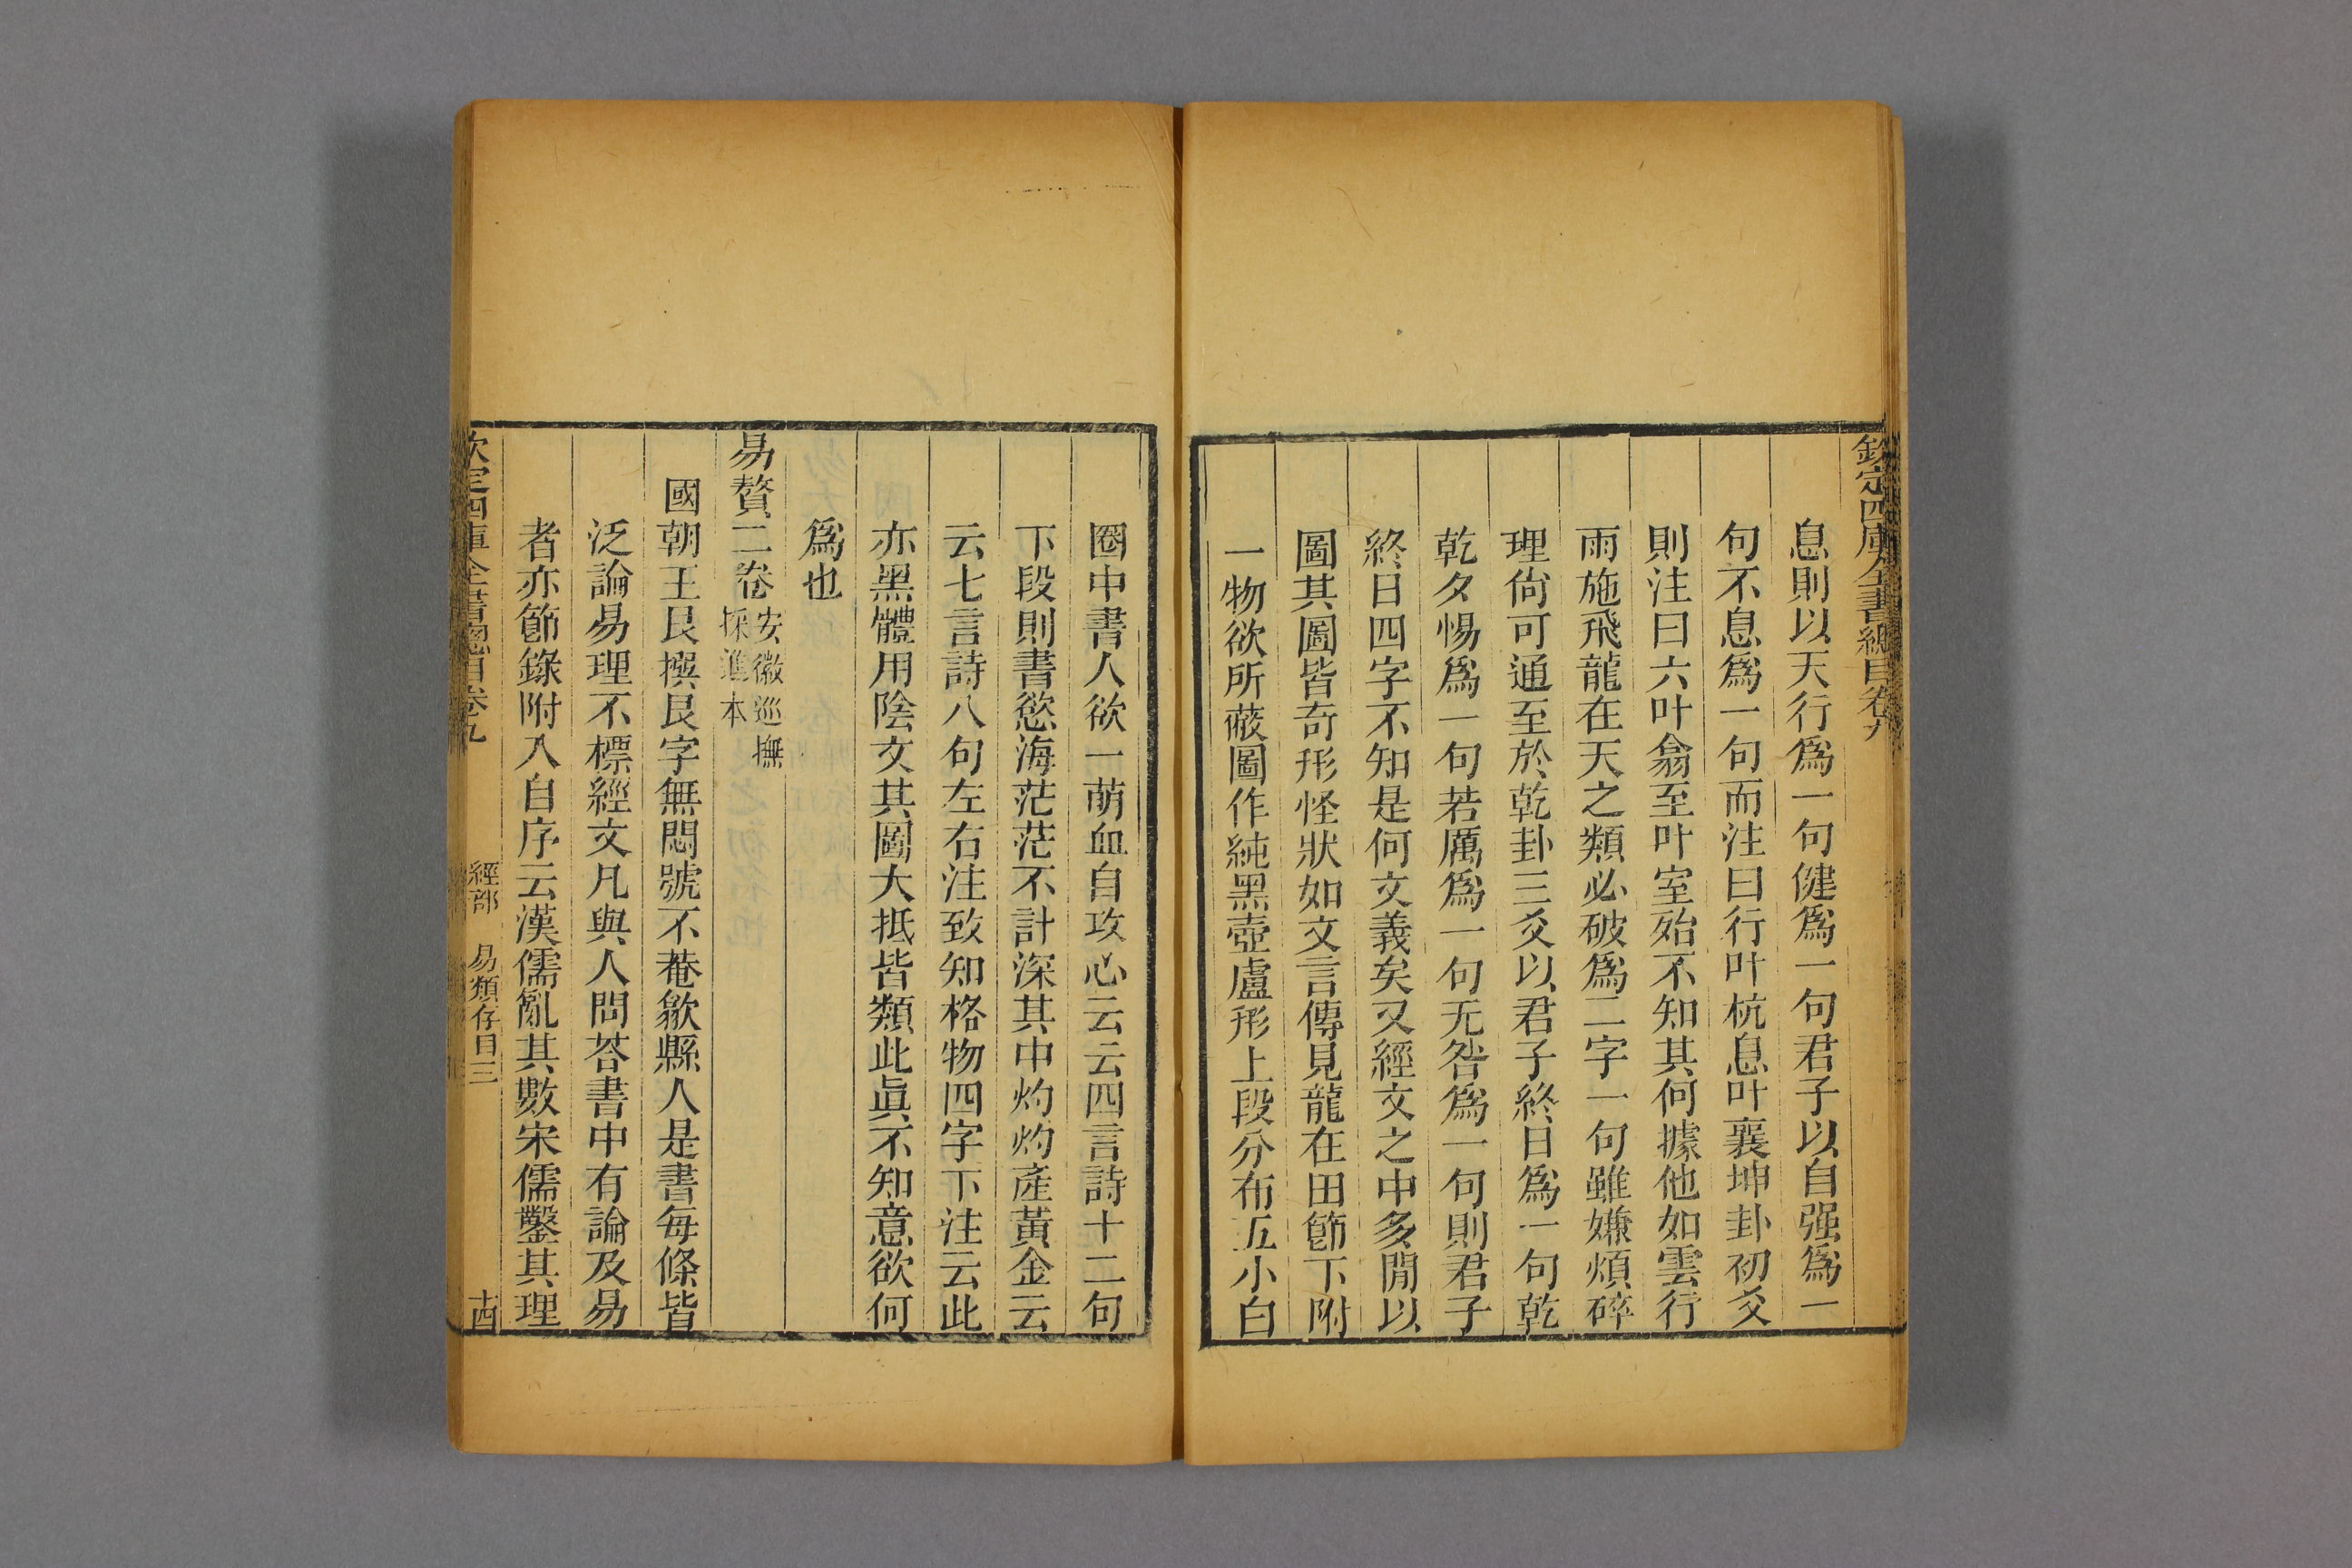 欽定四庫全書總目卷九
息則以天行爲一句健爲一句君子以自强爲一
句不息爲一句而注曰行叶杭息叶襄坤卦初爻
則注曰六叶翕至叶室殆不知其何據他如雲行
雨施飛龍在天之類必破爲二字一句雖嫌煩碎
理尙可通至於乾卦三爻以君子終日爲一句乾
乾夕惕爲一句若厲爲一句无咎爲一句則君子
終日四字不知是何文義矣又經文之中多閒以
圖其圖皆奇形怪狀如文言傳見龍在田節下附
一物欲所蔽圖作純黑壺盧形上段分布五小白
圈中書人欲一萌血自攻心云云四言詩十二句
下段則書慾海茫茫不計深其中灼灼產黃金云
云七言詩八句左右注致知格物四字下注云此
亦黑體用陰文其圖大抵皆類此眞不知意欲何
爲也
易贅二卷安徽巡撫
採進本
國朝王艮撰艮字無悶號不菴歙縣人是書每條皆
泛論易理不標經文凡與人問荅書中有論及易
者亦節錄附入自序云漢儒亂其數宋儒鑿其理
欽定四庫全書總目卷九
經部 易類存目三
十四